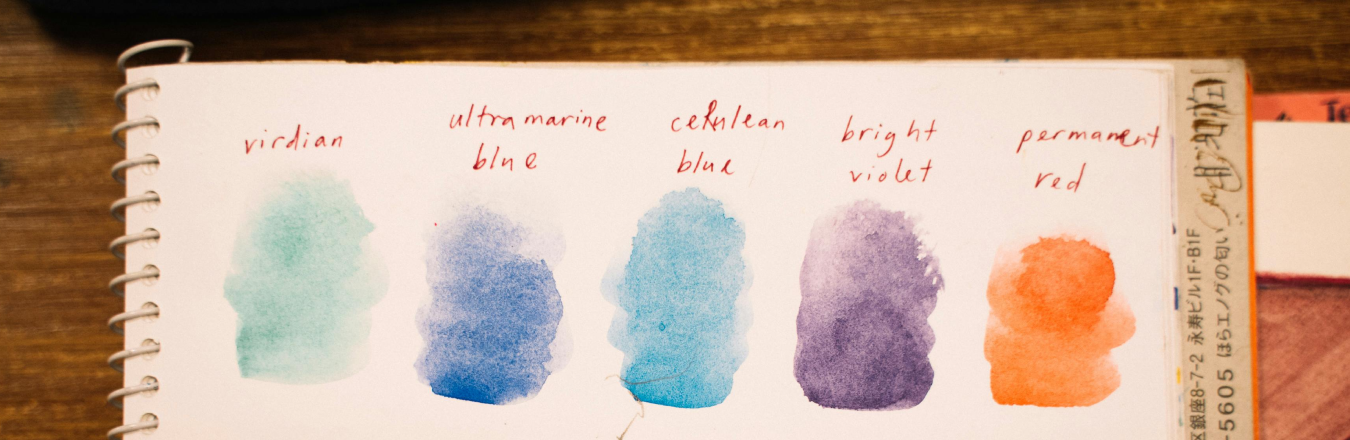 virdian
ultramarine
blue
cerulean
blue
bright
violet
permanent
red
区銀座8-7-2 永寿ビル1F・B1F
-5605 ほらエノグの匂い